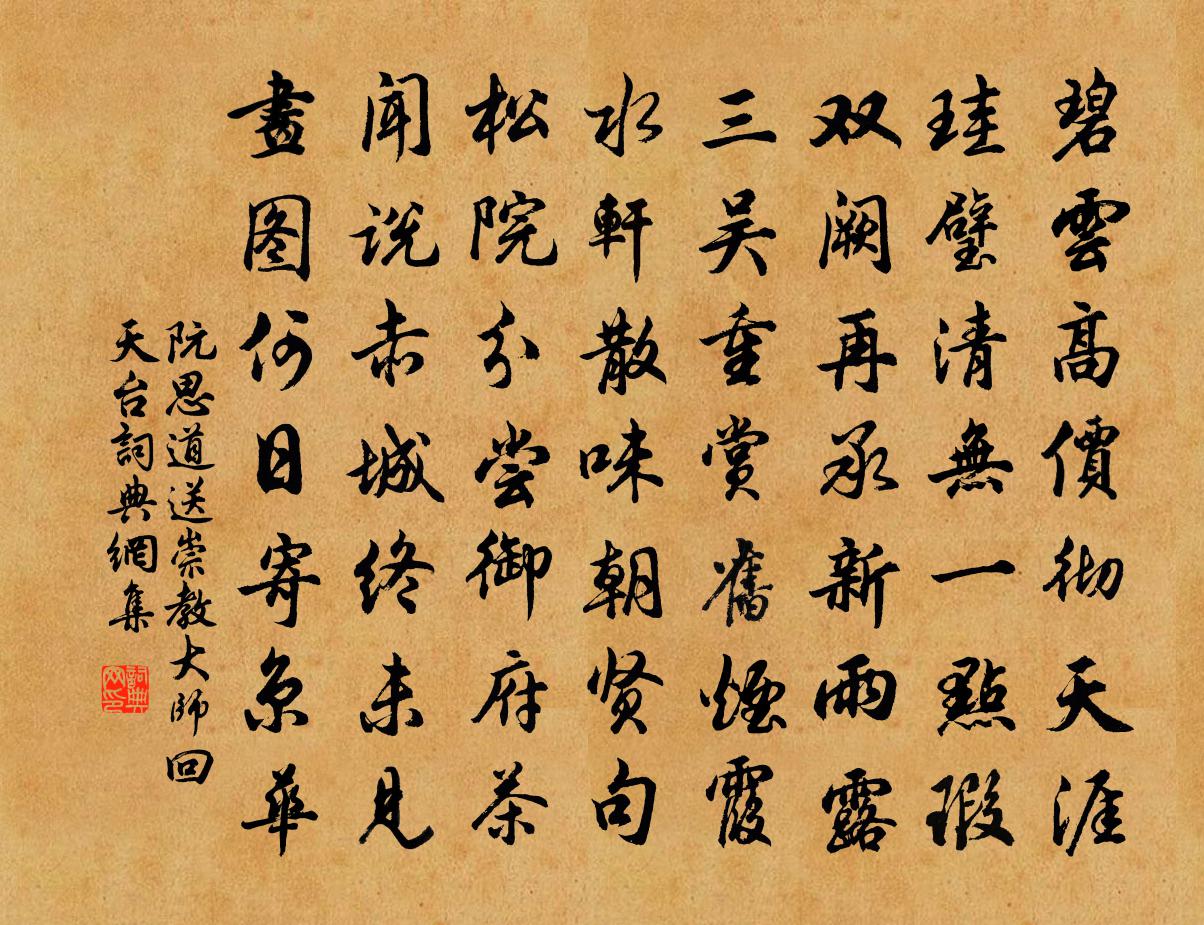 碧雲高價彻天涯
珪璧清無一點瑕
双阙再承新雨露
三吴重赏舊煙霞
水軒散味朝贤句
松院分尝御府茶
闻说赤城终未见
畫图何日寄京華
阮思道送崇教大师回
天台詞典網集
詞典网印